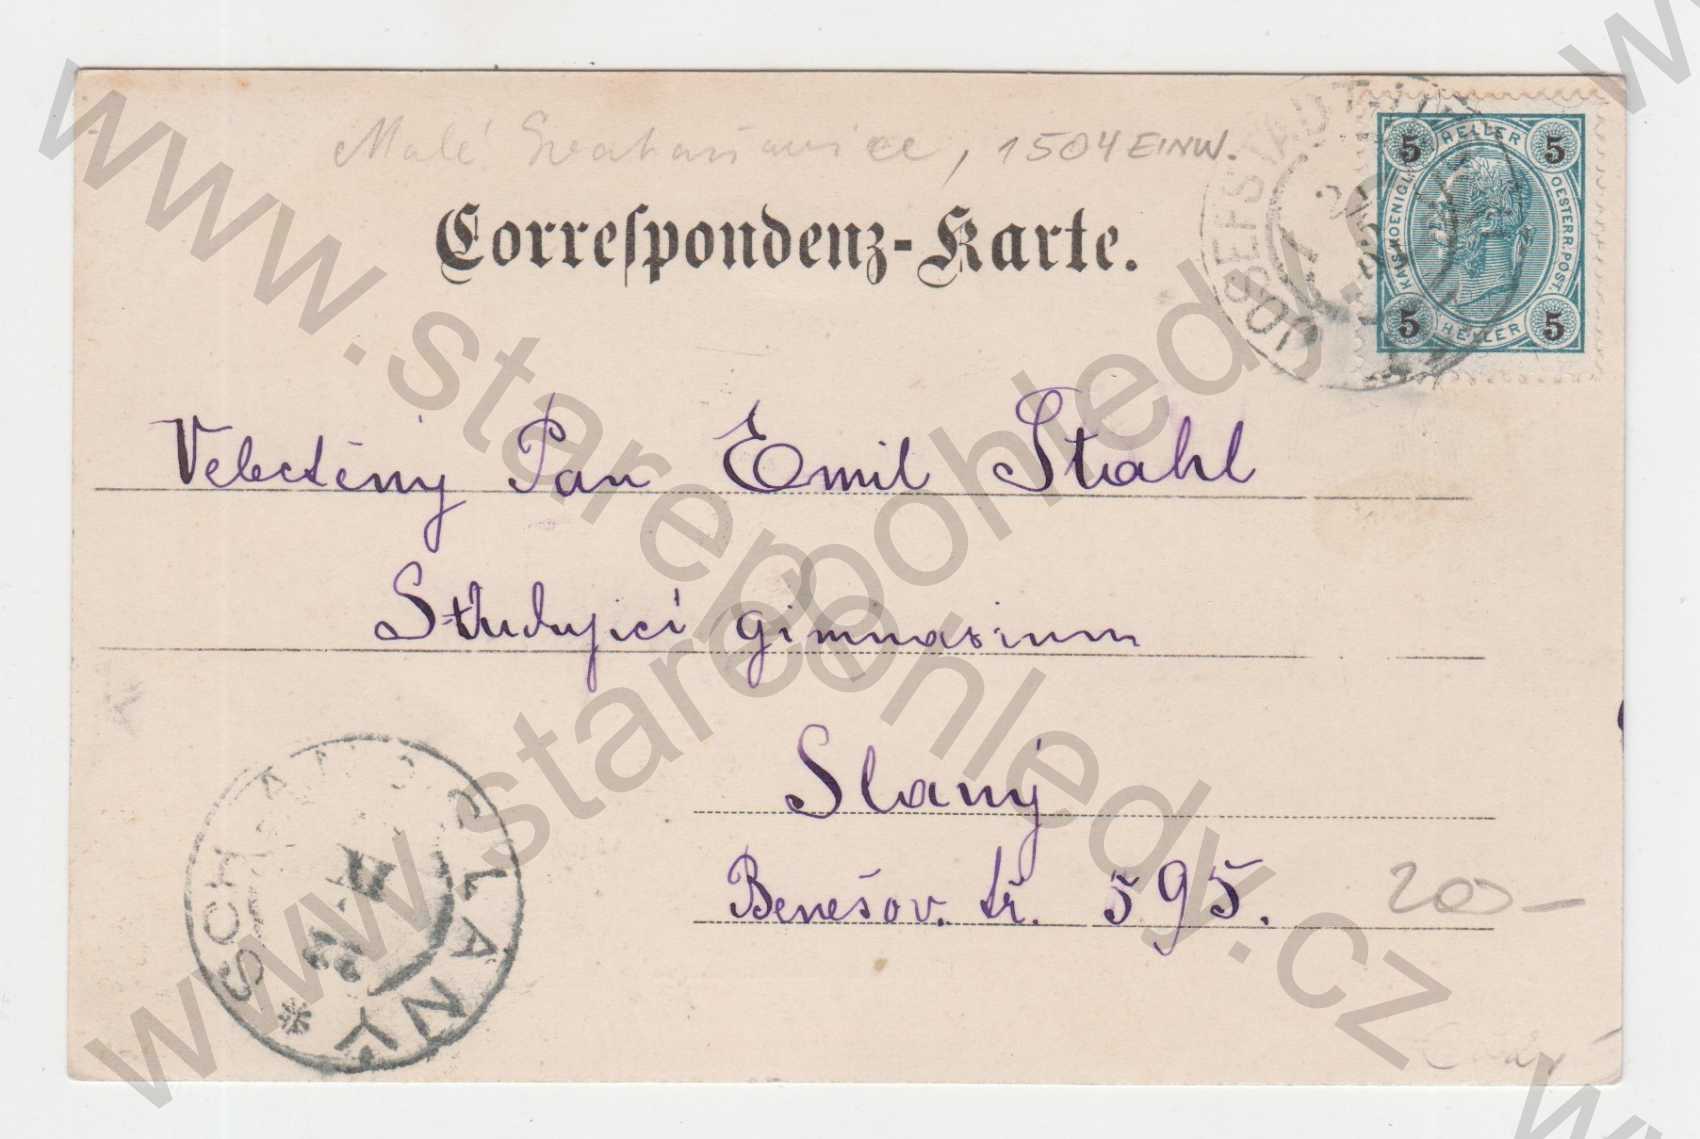 Malé Svatoňovice, 1504 EINW.
Correspondenz-Karte.
5 HELLER 5
KAIS. KOENIGL. OESTERR. POST.
5 HELLER 5
JOSEFSTADT
Velectěný Pan Emil Strahl
Studující gimnasium
Slaný
Benešov. tř. 595.
200 -
SCHLAN SLANÝ
www.starepohledy.cz
www.starepohledy.cz